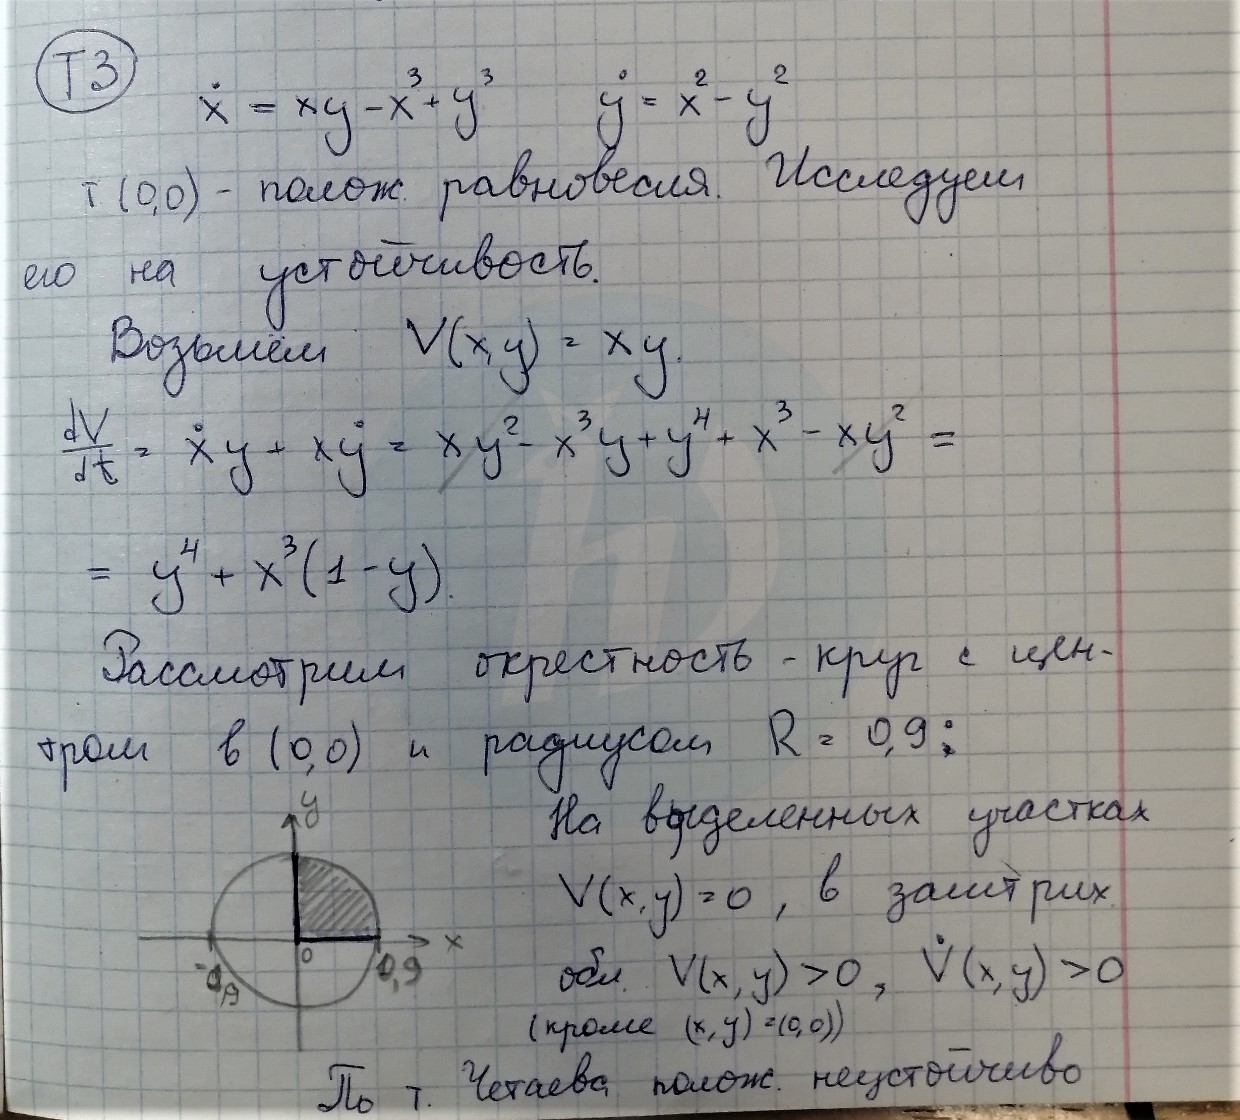 Т3
ẋ = xy - x³ + y³   ẏ = x² - y²
т (0,0) - полож. равновесия. Исследуем
его на устойчивость.
Возьмём V(x,y) = xy.
dV/dt = ẋy + xẏ = xy² - x³y + y⁴ + x³ - xy² =
= y⁴ + x³(1-y).
Рассмотрим окрестность - круг с цен-
тром в (0,0) и радиусом R = 0,9:
y
На выделенных участках
V(x,y)=0, в заштрих.
x
0
-0,9
0,9
обл. V(x,y)>0, V̇(x,y)>0
(кроме (x,y)=(0,0))
По т. Четаева полож. неустойчиво